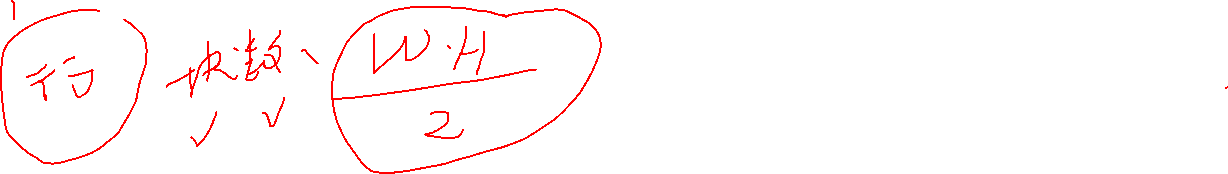 行 块数、 W·H/2